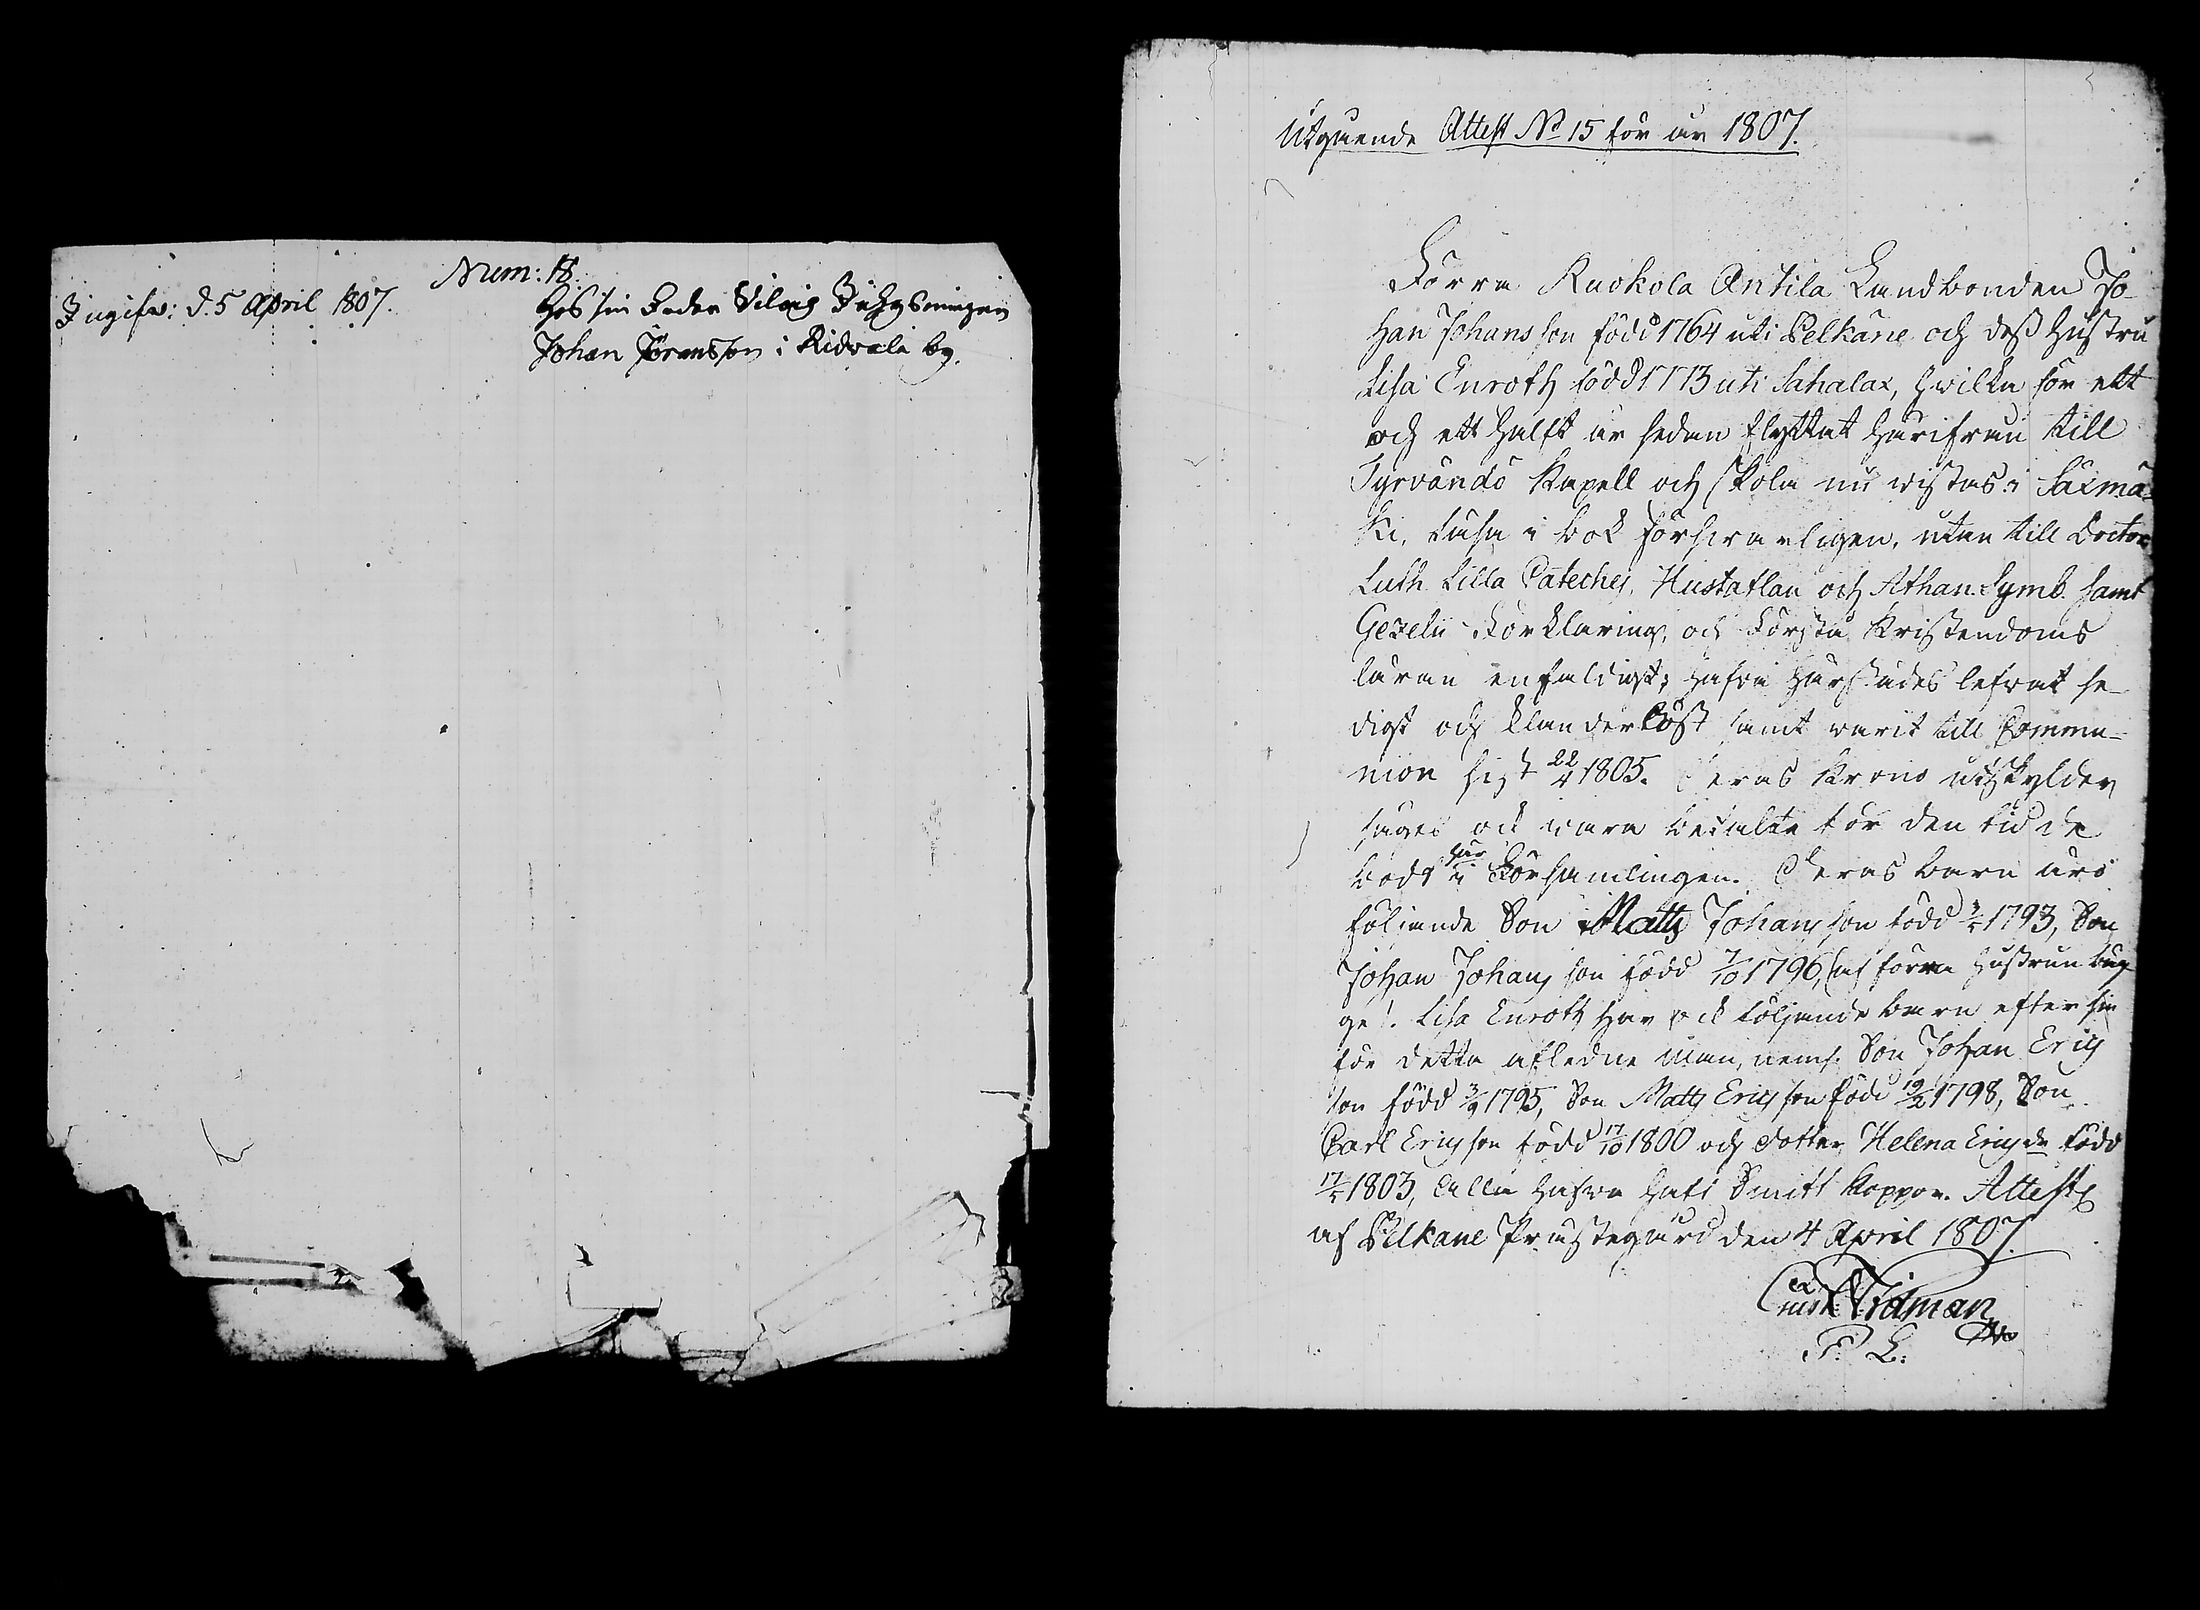 Num: 18.
Ingifw: d. 5 April 1807.
Hos sin Fader
Johan Jöransson i Ridvala by.
Utgående Attest No 15 för år 1807.
Förra Ruokola Antila Landbonden Jo-
han Johansson född 1764 uti Pelkäne och dess Hustru
Lisa Enroth född 1773 uti Sahalax, hvilka för ett
och ett halft år sedan flyttat härifrån till
Tyrvändö Kapell och skola nu wistas i Säxmä-
ki, läsa i bok försvarligen, utan till Doctor
Luth. Lilla Cateches, Hustaflan och Athan. Symb. samt
Gezelii Förklaring, och förstå Kristendoms
läran enfaldigt; hafva härstädes lefvat se-
digt och klanderlöst samt varit till Commu-
nion sist 22/4 1805. Deras Krono utskylder
säges ock vara betalte för den tid de
bodt här i Församlingen. Deras barn äro
följande Son Matts Johansson född 1793, Son
Johan Johansson född 7/10 1796, (af förra hustrun båg-
ge). Lisa Enroth har ock följande barn efter sin
för detta afledne man, neml. Son Johan Erics
son född 3/9 1795, Son Matts Ericsson född 19/2 1798, Son
Carl Ericsson född 17/10 1800 och dotter Helena Ericsdr född
1803, alla hafva haft Smitt koppor. Attest.
af Pelkäne Prästegård den 4 April 1807.
Tidman
P. L.